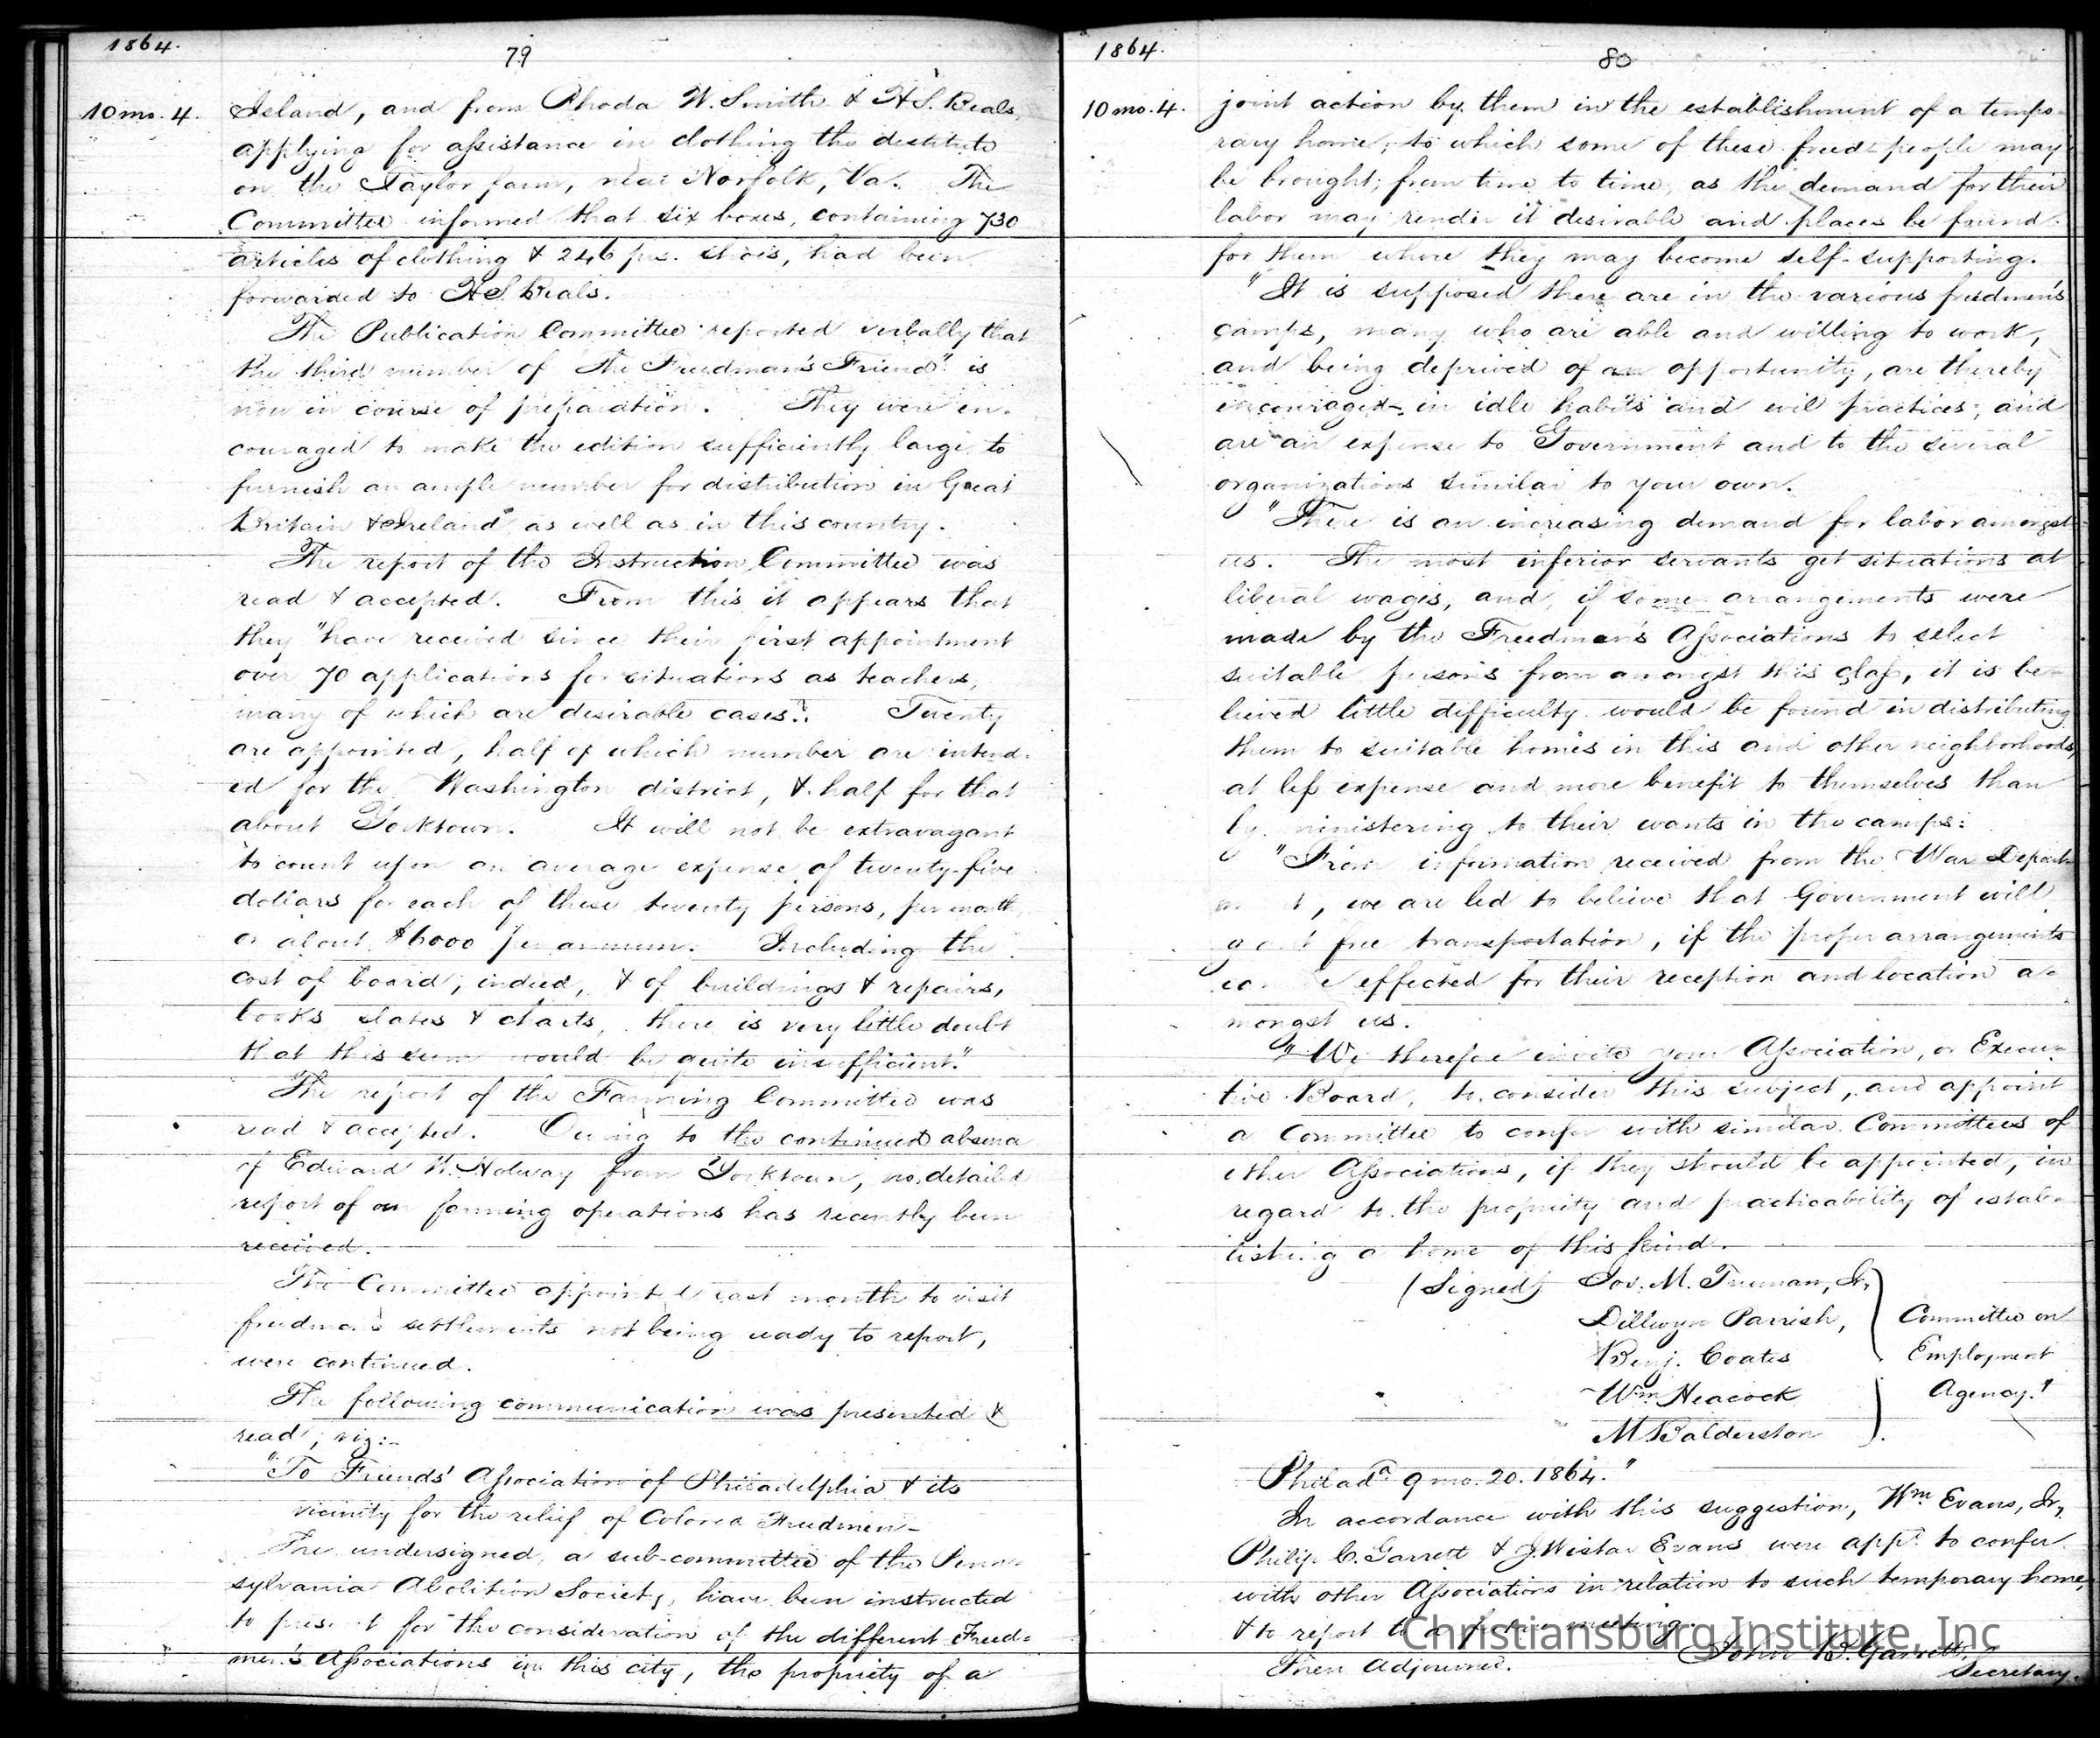 1864.
79
10 mo. 4.
Island, and from Rhoda W. Smith & H.S. Beals,
applying for assistance in clothing the destitute
on the Taylor farm, near Norfolk, Va. The
Committee informed that six boxes, containing 730
articles of clothing & 246 prs. shoes, had been
forwarded to H.S. Beals.
The Publication Committee reported verbally that
the third number of "The Freedman's Friend" is
now in course of preparation. They were en-
couraged to make the edition sufficiently large to
furnish an ample number for distribution in Great
Britain & Ireland as well as in this country.
The report of the Instruction Committee was
read & accepted. From this it appears that
they "have received since their first appointment
over 70 applications for situations as teachers,
many of which are desirable cases". Twenty
are appointed, half of which number are intend-
ed for the Washington district, & half for that
about Yorktown. It will not be extravagant
to count upon an average expense of twenty-five
dollars for each of these twenty persons, per month,
or about $6000 per annum. Including the
cost of board, indeed, & of buildings & repairs,
books slates & charts, there is very little doubt
that this sum would be quite insufficient."
The report of the Farming Committee was
read & accepted. Owing to the continued absence
of Edward W. Holway from Yorktown, no detailed
report of our farming operations has recently been
received.
The Committee appointed last month to visit
freedmen's settlements not being ready to report,
were continued.
The following communication was presented &
read, viz:-
"To Friends' Association of Philadelphia & its
vicinity for the relief of Colored Freedmen-
The undersigned, a sub-committee of the Penn-
sylvania Abolition Society, have been instructed
to present for the consideration of the different Freed-
men's Associations in this city, the propriety of a
1864.
80
10 mo. 4.
joint action by them in the establishment of a tempo-
rary home, to which some of these freed-people may
be brought, from time to time, as the demand for their
labor may render it desirable and places be found
for them where they may become self-supporting.
"It is supposed there are in the various freedmen's
camps, many who are able and willing to work,
and being deprived of an opportunity, are thereby
encouraged in idle habits and evil practices, and
are an expense to Government and to the several
organizations similar to your own.
"There is an increasing demand for labor amongst
us. The most inferior servants get situations at
liberal wages, and, if some arrangements were
made by the Freedmen's Associations to select
suitable persons from amongst this class, it is be-
lieved little difficulty would be found in distributing
them to suitable homes in this and other neighborhoods,
at less expense and more benefit to themselves than
by ministering to their wants in the camps:
"From information received from the War Depart-
ment, we are led to believe that Government will
grant free transportation, if the proper arrangements
can be effected for their reception and location a-
mongst us.
"We therefore invite your Association, or Execu-
tive Board, to consider this subject, and appoint
a Committee to confer with similar Committees of
other Associations, if they should be appointed, in
regard to the propriety and practicability of estab-
lishing a home of this kind.
(Signed) Jos. M. Truman, Jr,
Dillwyn Parrish, Committee on
Benj. Coates Employment
Wm Heacock Agency."
M Balderston
Philada 9 mo. 20. 1864."
In accordance with this suggestion, Wm Evans, Jr,
Philip C. Garrett & J. Wistar Evans were appd to confer
with other Associations in relation to such temporary home,
& to report to a future meeting.
Then Adjourned. John B. Garrett,
Secretary.
Christiansburg Institute, Inc